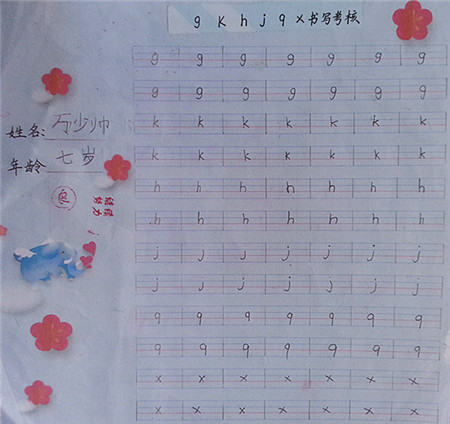 g k h j q x书写考核
姓名：万少帅
年龄 七岁
g g g g g g g
g g g g g g g
k k k k k k k
k k k k k k k
h h h h h h h
h h h h h h h
j j j j j j j
j j j j j j j
q q q q q q q
q q q q q q q
x x x x x x x
x x x x x x x